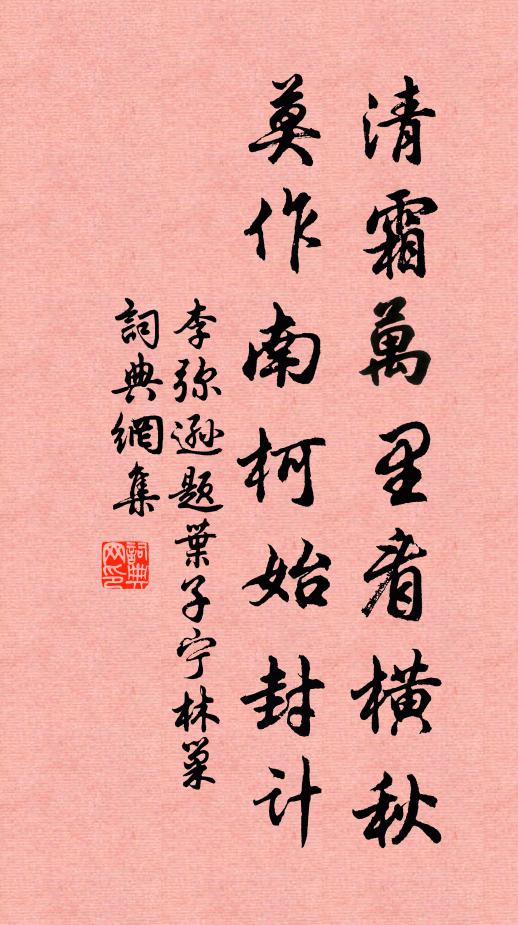 清霜萬里看橫秋
莫作南柯始封計
李弥遜題葉子宁林巢
詞典網集
詞典
网印